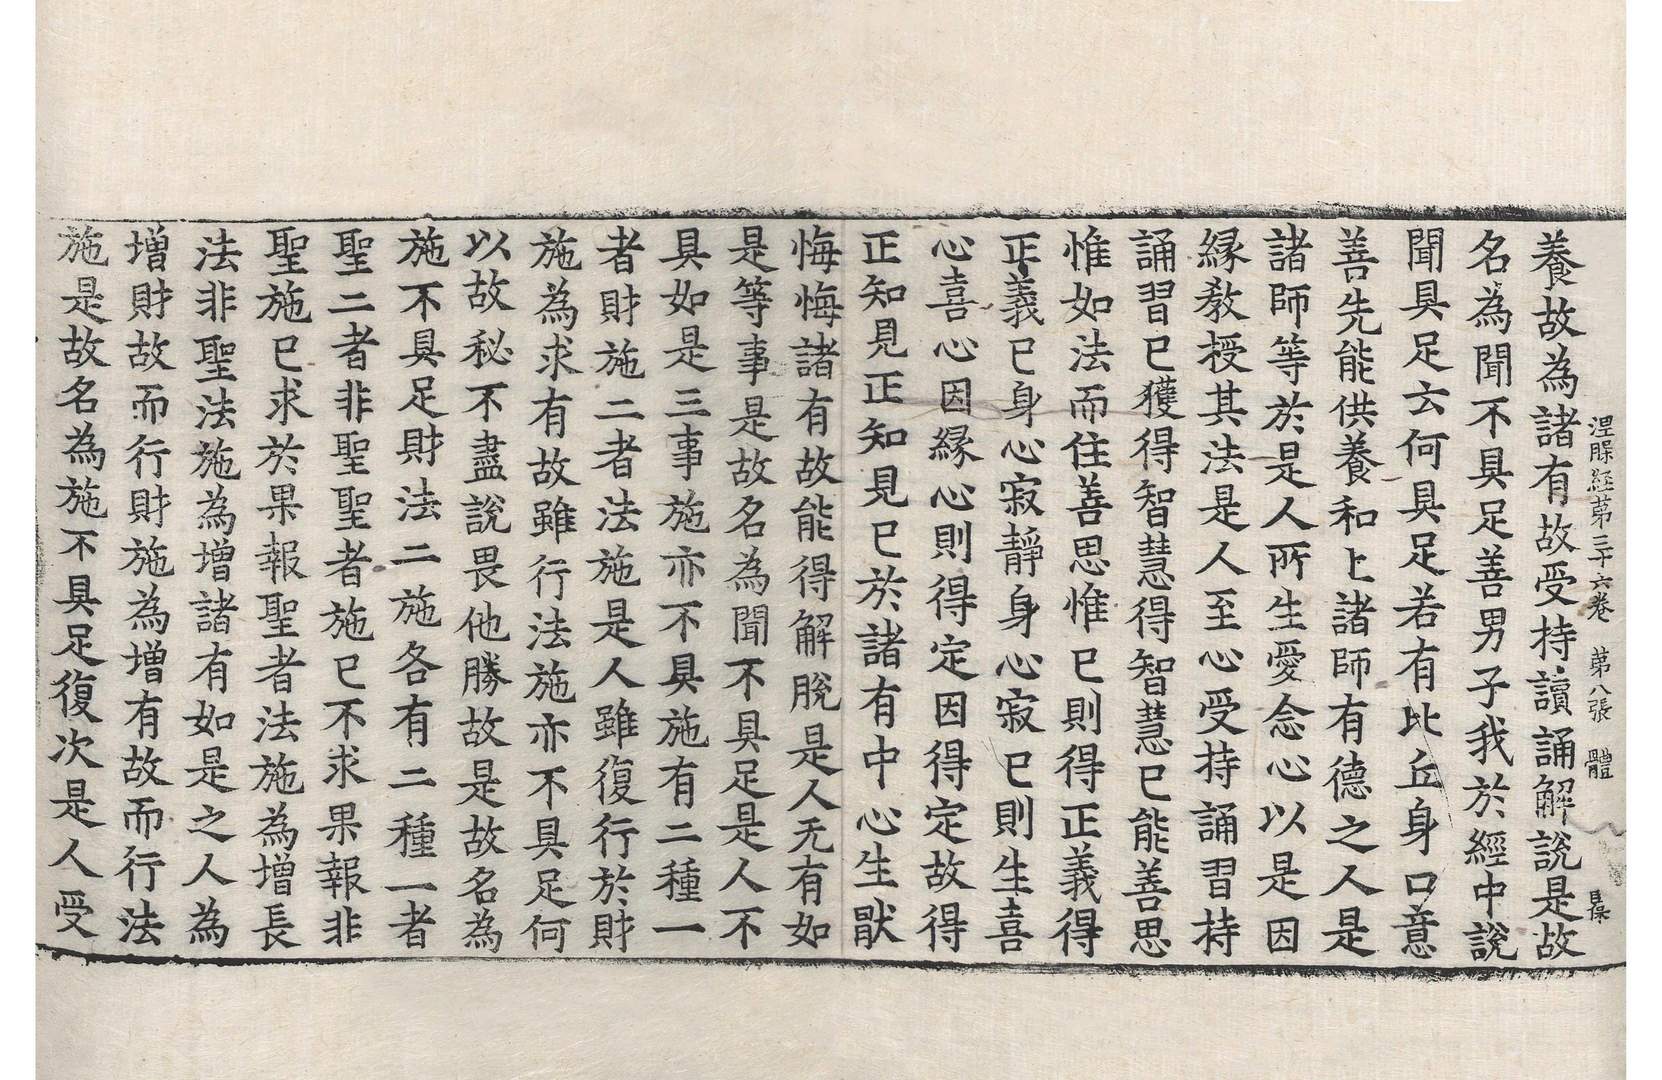 涅槃経苐三十六卷 苐八張 體
養故為諸有故受持讀誦解說是故
名為聞不具足善男子我於經中說
聞具足云何具足若有比丘身口意
善先能供養和上諸師有德之人是
諸師等於是人所生愛念心以是因
縁教授其法是人至心受持誦習持
誦習已獲得智慧得智慧已能善思
惟如法而住善思惟已則得正義得
正義已身心寂靜身心寂已則生喜
心喜心因縁心則得定因得定故得
正知見正知見已於諸有中心生猒
悔悔諸有故能得解脫是人无有如
是等事是故名為聞不具足是人不
具如是三事施亦不具施有二種一
者財施二者法施是人雖復行於財
施為求有故雖行法施亦不具足何
以故秘不盡說畏他勝故是故名為
施不具足財法二施各有二種一者
聖二者非聖聖者施已不求果報非
聖施已求於果報聖者法施為增長
法非聖法施為增諸有如是之人為
增財故而行財施為增有故而行法
施是故名為施不具足復次是人受